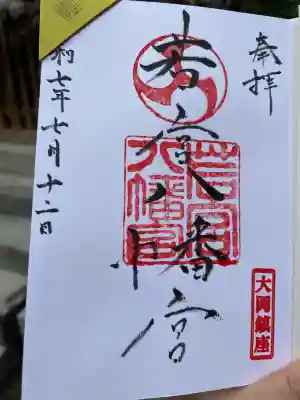 奉拝
若宮八幡宮
若宮八幡宮
大岡鎮座
令和七年七月十二日